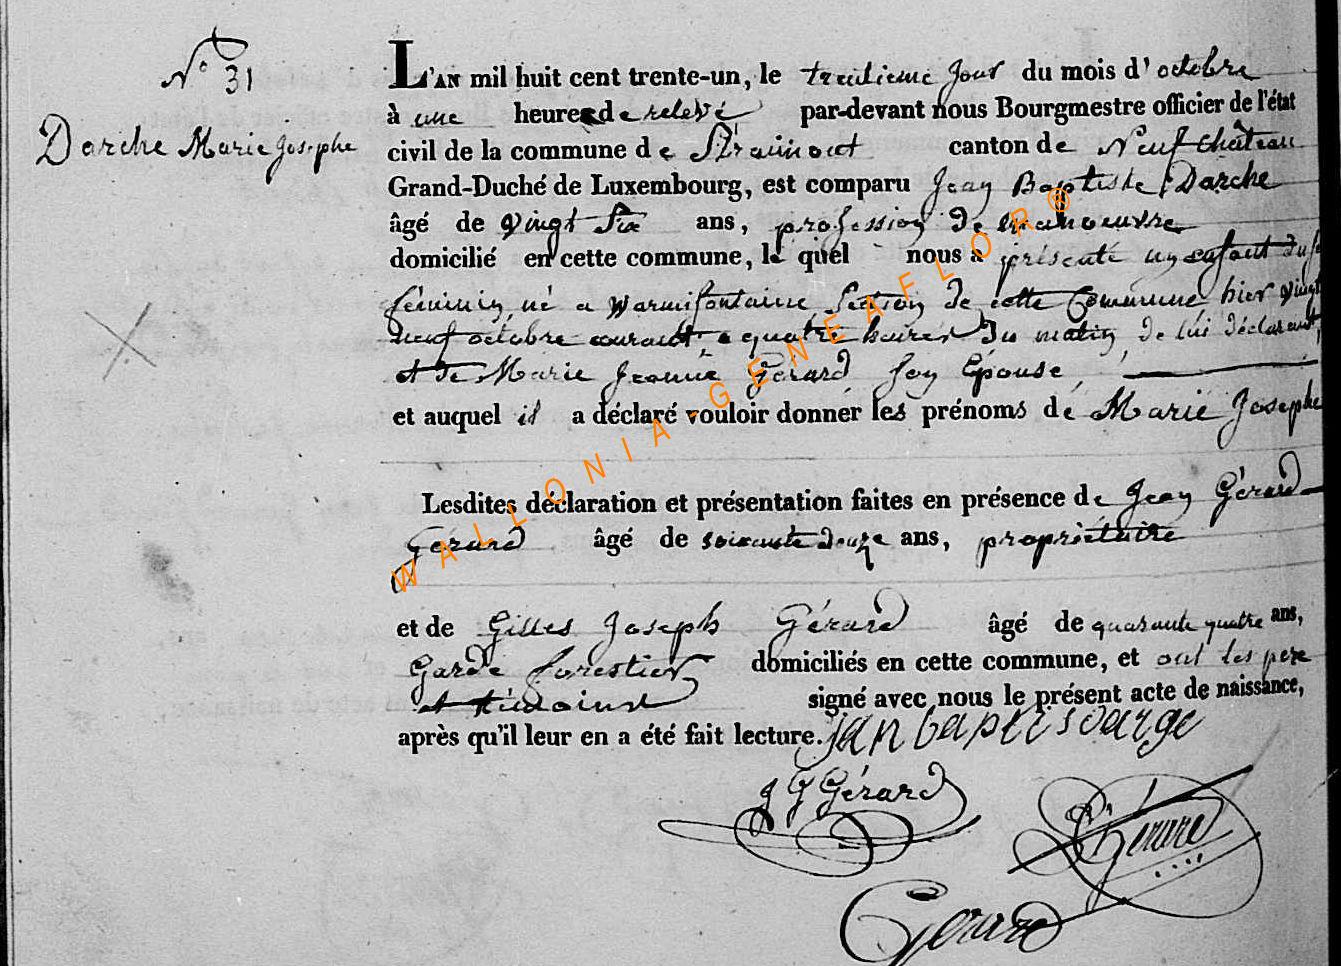 N° 31
Darche Marie Josephe
L'AN mil huit cent trente-un, le trentieme jour du mois d'octobre
à une heure de relevé par-devant nous Bourgmestre officier de l'état
civil de la commune de Straimont canton de Neufchâteau
Grand-Duché de Luxembourg, est comparu Jean Baptiste Darche
âgé de vingt Six ans, profession de manoeuvre
domicilié en cette commune, le quel nous a présenté un enfant du
féminin, né a Warmifontaine Section de cette Commune hier vingt
neuf octobre courant a quatre heures du matin, de lui déclarant,
et de Marie Jeanne Gérard son Épouse,
et auquel il a déclaré vouloir donner les prénoms de Marie Josephe
Lesdites déclaration et présentation faites en présence de Jean Gérard
Gérard âgé de soixante douze ans, propriétaire
et de Gilles Joseph Gérard âgé de quarante quatre ans,
Garde forestier domiciliés en cette commune, et ont les pere
et témoins signé avec nous le présent acte de naissance,
après qu'il leur en a été fait lecture.
J G Gérard
Gérard
Gerard
WALLONIA-GENEAFLOR®